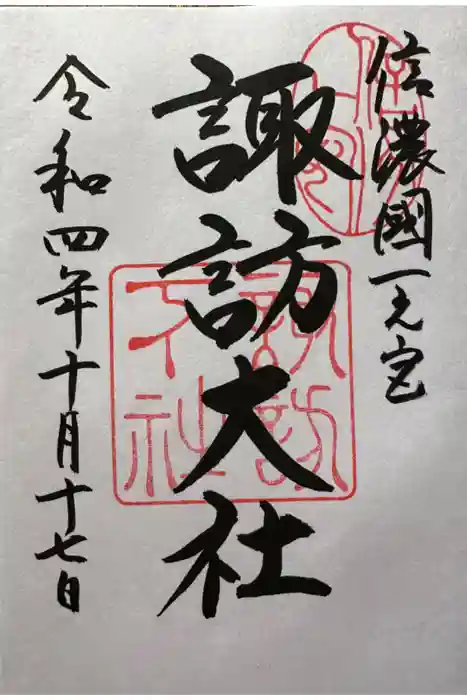 信濃國一之宮
諏訪大社
令和四年十月十七日
諏訪
下社